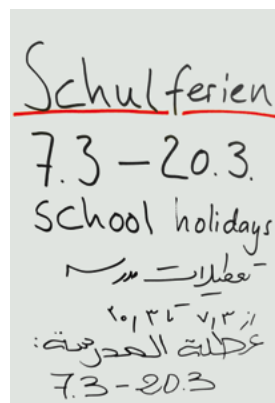 Schulferien
7.3 – 20.3.
School holidays
تعطیلات مدرسه
از ۷،۳ تا ۲۰،۳
عطلة المدرسة:
7.3 - 20.3